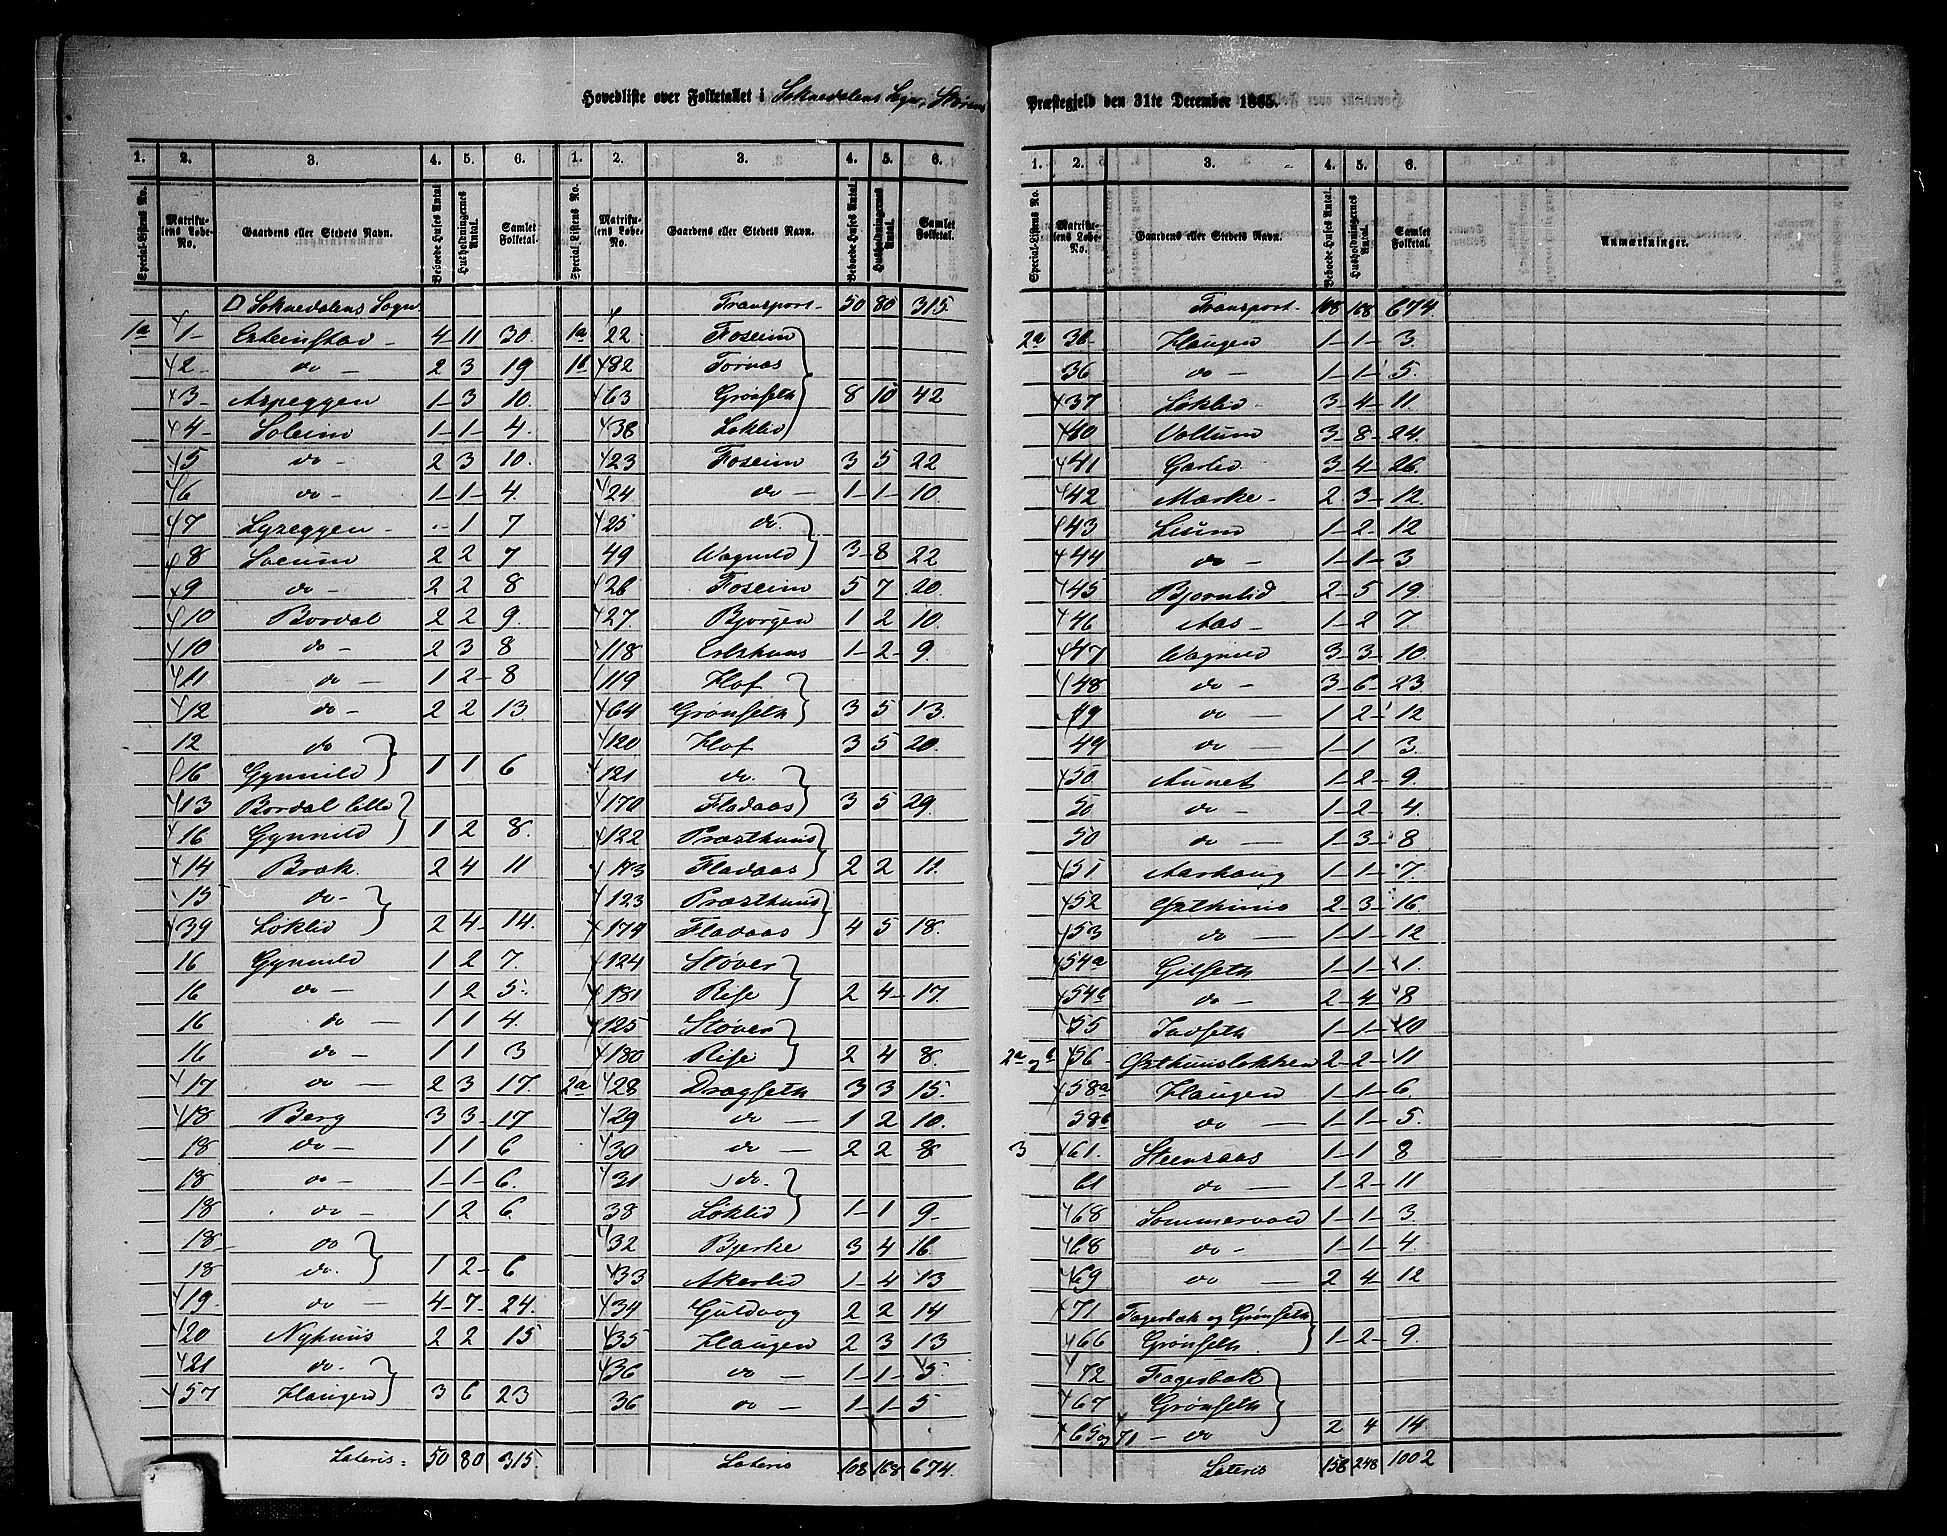 Hovedliste over Folketallet i Soknedalens Sogn, Størens Præstegjeld den 31te December 1865.
1. 2. 3. 4. 5. 6. 1. 2. 3. 4. 5. 6.
Special-Listens No. Matrikulens Løbe-No. Gaardens eller Stedets Navn. Beboede Huses Antal. Husholdningernes Antal. Samlet Folketal. Special-Listens No. Matrikulens Løbe-No. Gaardens eller Stedets Navn. Beboede Huses Antal. Husholdningernes Antal. Samlet Folketal.
Soknedalens Sogn
1a 1 4 11 30.
2 do 2 3 19
3 Aspeggen 1 3 10.
4 Soleim 1 1 4.
5 do 2 3 10.
6 do 1 1 4.
7 1 7
8 2 2 7
9 do 2 2 8
10 Bordal 2 2 9.
10 do 2 3 8
11 do 1 2 8
12 do 2 2 13
12 do
16 Gynnild 1 1 6
13 Bordal lille
16 Gynnild 1 2 8.
14 Bræk. 2 4 11
15 do
39 Løklid 2 4 14.
16 Gynnild 1 2 7.
16 do 1 2 5.
16 do 1 1 4.
16 do 1 1 3
17 do 2 3 17.
18 Berg 3 3 17
18 do 1 1 6
18 do 1 1 6.
18 do 1 2 6.
18 do
18 do. 1 2 6
19 do 4 7 24.
20 Nyhuus 2 2 15
21 do.
57 Haugen 3 6 23
Lateris 50 80 315.
Transport 50 80 315.
1a 22 Foseim
82
63 Grønseth 8 10 42
38 Løklid
23 Foseim 3 5 22
24 do 1 1 10.
25 do.
49 Wagnild 3 8 22
26 Foseim 5 7 20.
27 Bjørgen 1 2 10.
118 1 2 9.
119 Hof
64 Grønseth 3 5 13.
120 Hof 3 5 20.
121 do.
170 Fladaas 3 5 29.
122 Præsthuus
173 Fladaas 2 2 11.
123 Præsthuus
179 Fladaas 4 5 18.
124 Støver
181 Rise 2 4 17.
125 Støver
180 Rise 2 4 8.
2a 28 Dragseth 3 3 15.
29 do 1 2 10.
30 do 2 2 8
31 do.
38 Løklid 1 1 9
32 Bjerke 3 4 16
33 Akerlid 1 4 13
34 2 2 14
35 Haugen 2 3 13
36 do 1 1 5.
36 do 1 1 5
Lateris 108 168 674.
1. 2. 3. 4. 5. 6.
Special-Listens No. Matrikulens Løbe-No. Gaardens eller Stedets Navn. Beboede Huses Antal. Husholdningernes Antal. Samlet Folketal. Anmærkninger.
Transport 108 168 674
2a 36 Haugen 1 1 3.
36 do 1 1 5.
37 Løklid 3 4 11
40 Vollum 3 8 24.
41 Garlid 3 4 26.
42 Mærke 2 3 12.
43 Lium 1 2 12
44 do 1 1 3
45 Bjørnlid 2 5 19.
46 Aas 1 2 7
47 Wagnild 3 3 10.
48 do 3 6 23
49 do 1 2 12
49 do 1 1 3.
50 Aunet 1 2 9.
50 do 1 2 4.
50 do 1 3 8
51 Aarhaug 1 1 7.
52 2 3 16.
53 do 1 1 12
54a Gilseth 1 1 1.
54b do 2 4 8
55 1 1 10
2a 2b 56 2 2 11
58a Haugen 1 1 6.
58b do 1 1 5.
3 61. Steensaas 1 1 8
61 do 1 2 11
68 Sommervold 1 1 3.
68 do 1 1 4.
69 do 2 4 12
71 Fagerbæk og Grønseth
66 Grønseth 1 2 9.
72 Fagerbæk
67 Grønseth
65 og 71 do 2 4 14
Lateris 158 248 1002